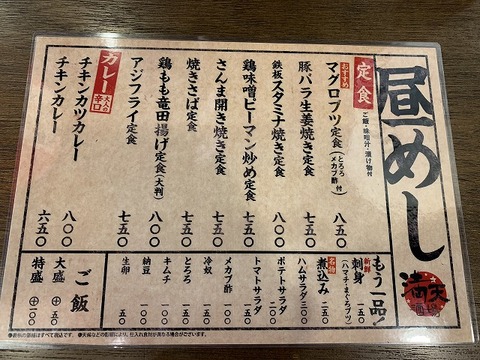 昼めし
定食
ご飯・味噌汁・漬け物付
おすすめ
マグロブツ定食(とろろ メカブ酢 付) 八五〇
豚バラ生姜焼き定食 七五〇
鉄板スタミナ焼き定食 八〇〇
鶏味噌ピーマン炒め定食 七五〇
さんま開き焼き定食 七五〇
焼きさば定食 七五〇
鶏もも竜田揚げ定食(大判) 八〇〇
アジフライ定食 七五〇
カレー 大人の辛口
チキンカツカレー 八〇〇
チキンカレー 六五〇
もう一品!
新鮮 刺身(ハマチ・まぐろブツ) 三五〇
名物 煮込み 三五〇
ハムサラダ 三〇〇
ポテトサラダ
トマトサラダ
メカブ酢
冷奴
とろろ 一五〇
キムチ 一五〇
納豆 一〇〇
生卵 五〇
ご飯
大盛 ⊕五〇
特盛 ⊕一〇〇
満天酒場
●表示の価格はすべて税込です。●天候などの影響により、仕入れ食材が異なる場合がございます。